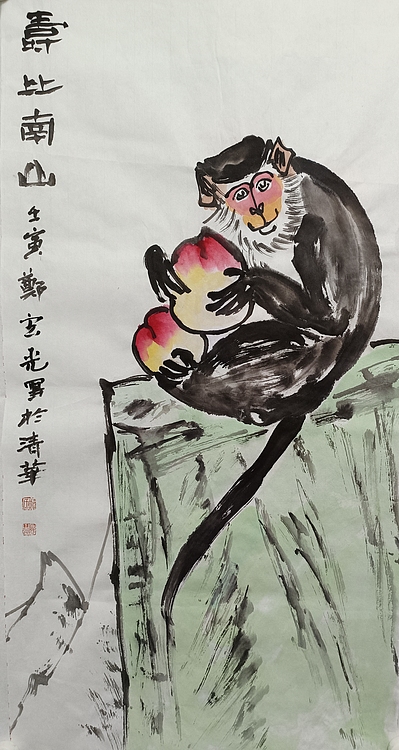 壽比南山
壬寅鄭玄光写於清華